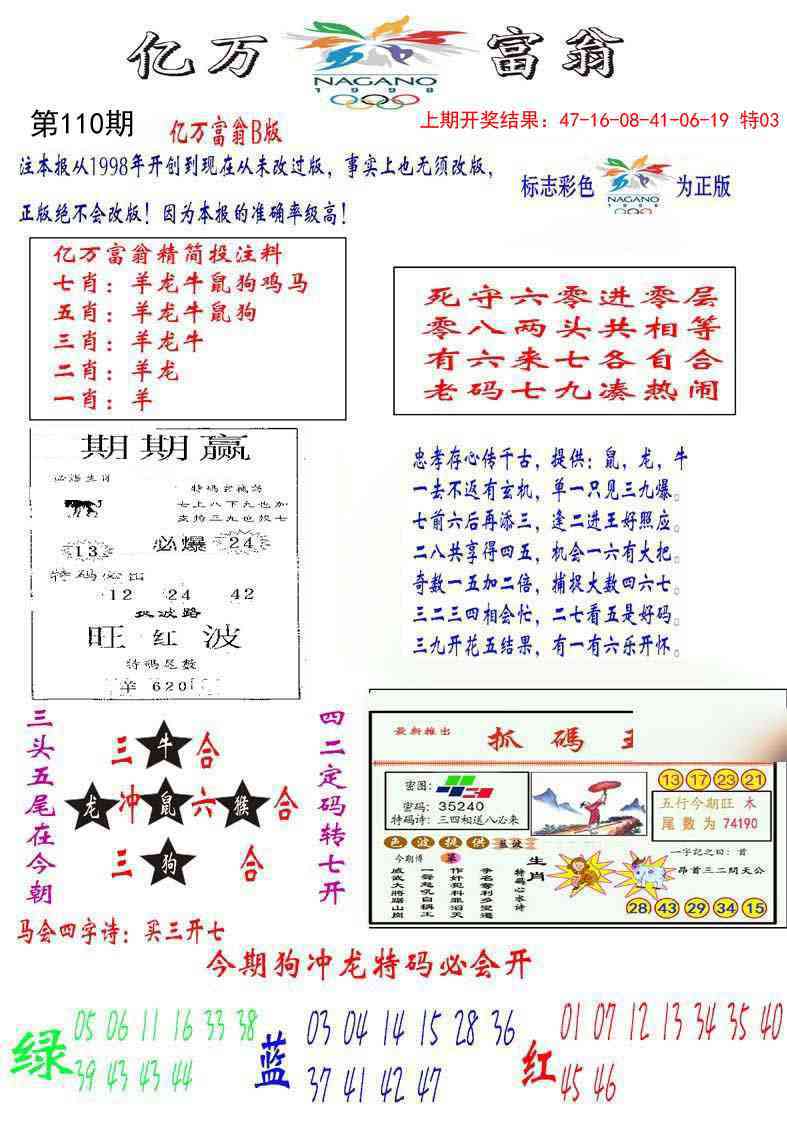 亿万富翁
NAGANO
1998
第110期
亿万富翁B版
上期开奖结果：47-16-08-41-06-19 特03
注本报从1998年开创到现在从未改过版，事实上也无须改版，
正版绝不会改版！因为本报的准确率级高！
标志彩色
NAGANO
1998
为正版
亿万富翁精简投注料
七肖：羊龙牛鼠狗鸡马
五肖：羊龙牛鼠狗
三肖：羊龙牛
二肖：羊龙
一肖：羊
死守六零进零层
零八两头共相等
有六来七各自合
老码七九凑热闹
期期赢
必爆
13
24
特码必出
12 24 42
旺 红 波
特码尾数
羊 620
忠孝存心传千古，提供：鼠，龙，牛
一去不返有玄机，单一只见三九爆。
七前六后再添三，逢二进王好照应。
二八共享得四五，机会一六有大把。
奇数一五加二倍，捕捉大数四六七。
三二三四相会忙，二七看五是好码。
三九开花五结果，有一有六乐开怀。
三头五尾在今朝
四二定码转七开
三 牛 合
龙 冲 鼠 六 猴 合
三 狗 合
马会四字诗：买三开七
最新推出
抓碼
密图：
密码：35240
特码诗：三四相送八必来
13 17 23 21
五行今期旺 木
尾数为 74190
色波提供
蓝波
今期博
生肖
特码心水诗
一字记之曰：首
昂首三二問天公
28 43 29 34 15
今期狗冲龙特码必会开
绿
05 06 11 16 33 38
39 43 43 44
蓝
03 04 14 15 28 36
37 41 42 47
红
01 07 12 13 34 35 40
45 46